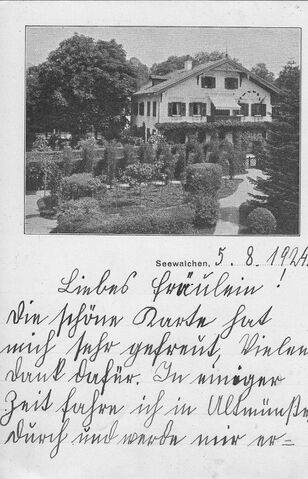 Seewalchen, 5. 8. 1924
Liebes Fräulein!
Die schöne Karte hat
mich sehr gefreut, Vielen
Dank dafür. In einiger
Zeit fahre ich in Altmünste
durch und werde mir er-